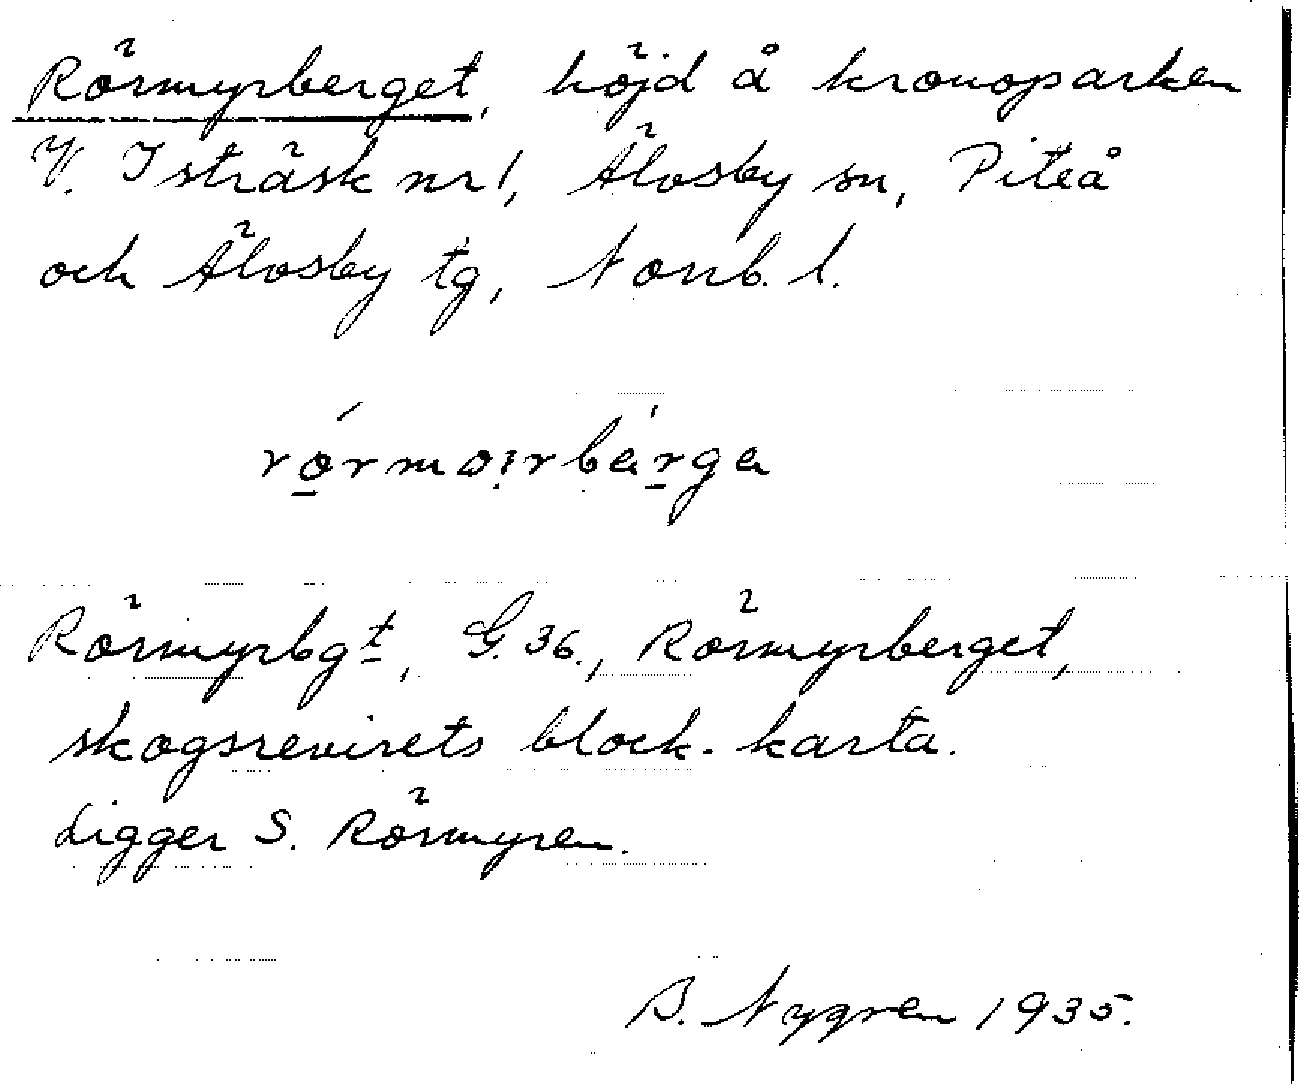 Rörmyrberget, höjd å kronoparken
V. Isträsk nr 1, Älvsby sn, Piteå
och Älvsby tg, Norrb. l.
rörmoirbärga
Rörmyrbgt, G. 36., Rörmyrberget,
skogsrevirets block-karta.
Ligger S. Rörmyren.
B. Nygren 1935.